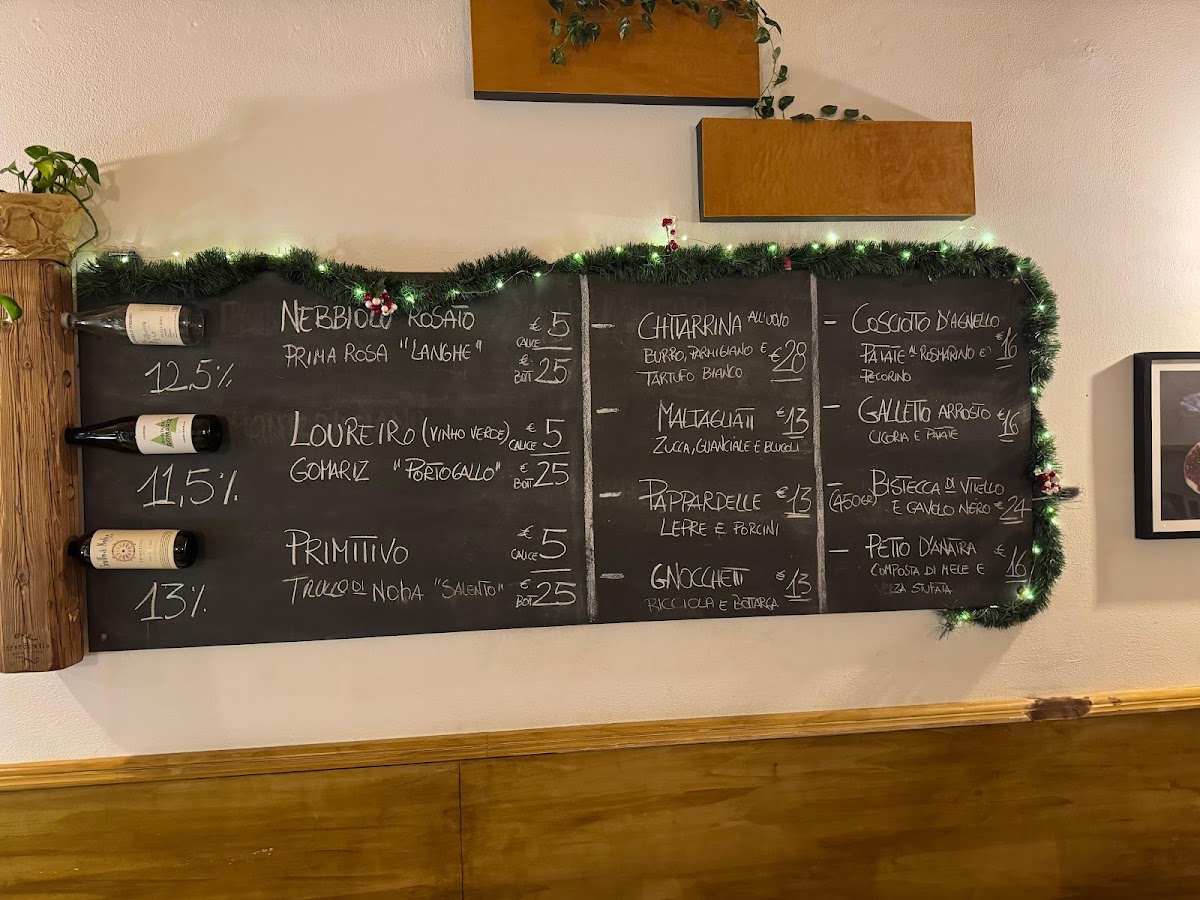 NEBBIOLO ROSATO
PRIMA ROSA "LANGHE"
€ 5
CALICE
€
BOTT 25
12,5%
LOUREIRO (VINHO VERDE)
GOMARIZ "PORTOGALLO"
€ 5
CALICE
€
BOTT 25
11,5%
PRIMITIVO
TRULLO DI NOHA "SALENTO"
€ 5
CALICE
€
BOTT 25
13%
- CHITARRINA ALL'UOVO
BURRO, PARMIGIANO E €28
TARTUFO BIANCO
- MALTAGLIATI €13
ZUCCA, GUANCIALE E
- PAPPARDELLE €13
LEPRE E PORCINI
- GNOCCHETTI €13
RICCIOLA E BOTTARGA
- COSCIOTTO D'AGNELLO
PATATE AL ROSMARINO E €16
PECORINO
- GALLETTO ARROSTO €16
CICORIA E PATATE
- BISTECCA DI VITELLO
(450GR) E CAVOLO NERO €24
- PETTO D'ANATRA €16
COMPOSTA DI MELE E
VERZA STUFATA